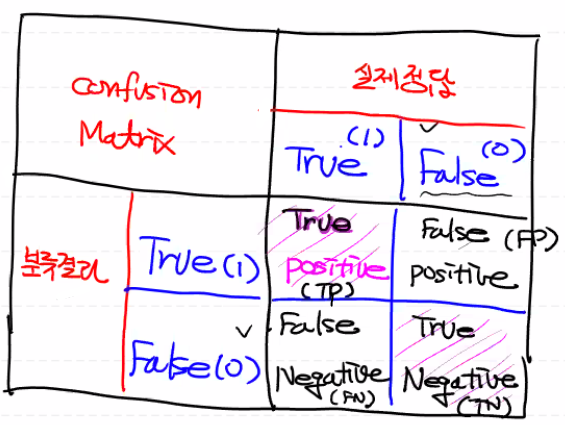 confusion
Matrix
실제정답
True (1)
False (0)
분류결과
True (1)
False (0)
True
positive
(TP)
False (FP)
positive
False
Negative
(FN)
True
Negative
(TN)